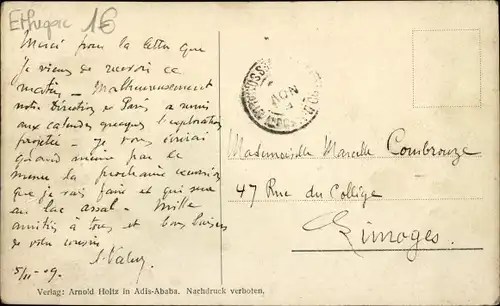 1€
Merci pour la lettre que
je viens de recevoir ce
matin. Malheureusement
notre Direction de Paris a remis
aux calendes grecques l'exploration
projetée - Je vous écrirai
quand même par le
menu la prochaine excursion
que je vais faire et qui sera
au lac assal. Mille
amitiés à tous et bons baisers
de votre cousin
5/11-09.
Mademoiselle Marcelle Combrouze
47 Rue du Collège
Limoges.
Verlag: Arnold Holtz in Adis-Ababa. Nachdruck verboten.